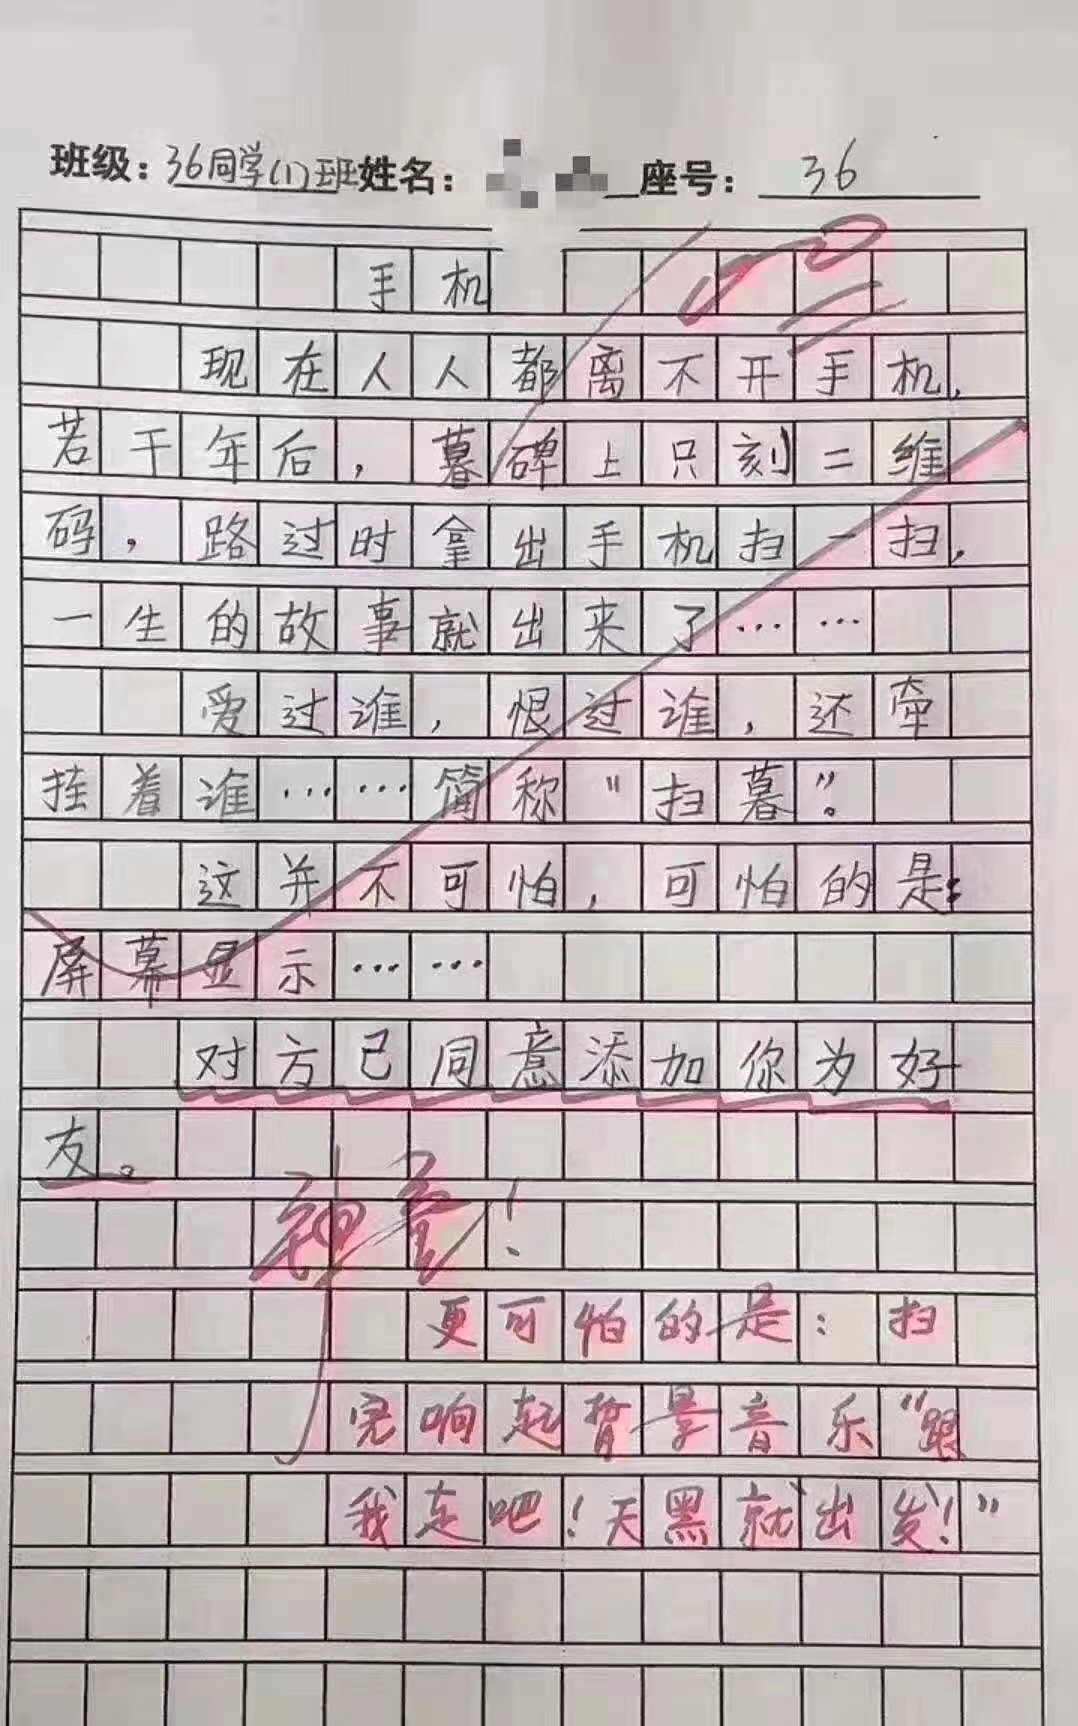 班级：36同学(1)班姓名： 座号：36
手机
现在人人都离不开手机，
若干年后，暮碑上只刻二维
码，路过时拿出手机扫一扫，
一生的故事就出来了……
爱过谁，恨过谁，还牵
挂着谁……简称"扫暮"。
这并不可怕，可怕的是：
屏幕显示……
对方已同意添加你为好
友。
神童！
更可怕的是：扫
完响起背景音乐"跟
我走吧！天黑就出发！"